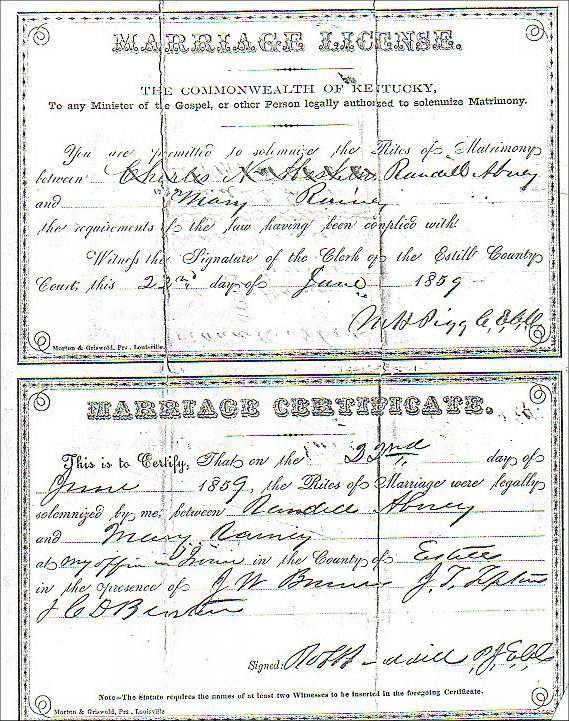 MARRIAGE LICENSE.
THE COMMONWEALTH OF KENTUCKY,
To any Minister of the Gospel, or other Person legally authorized to solemnize Matrimony.
You are permitted to solemnize the Rites of Matrimony
between Charles N Randell Abney
and Mary Rainey
the requirements of the law having been complied with.
Witness the Signature of the Clerk of the Estill County
Court, this 22nd day of June 1859
Morton & Griswold, Prs. Louisville.
MARRIAGE CERTIFICATE.
This is to Certify, That on the 22nd day of
June 1859, the Rites of Marriage were legally
solemnized by me, between Randell Abney
and Mary Rainey
at my office in Irvine in the County of Estill
in the presence of J W J. T.
Signed:
Note—The Statute requires the names of at least two Witnesses to be inserted in the foregoing Certificate.
Morton & Griswold, Prs. Louisville